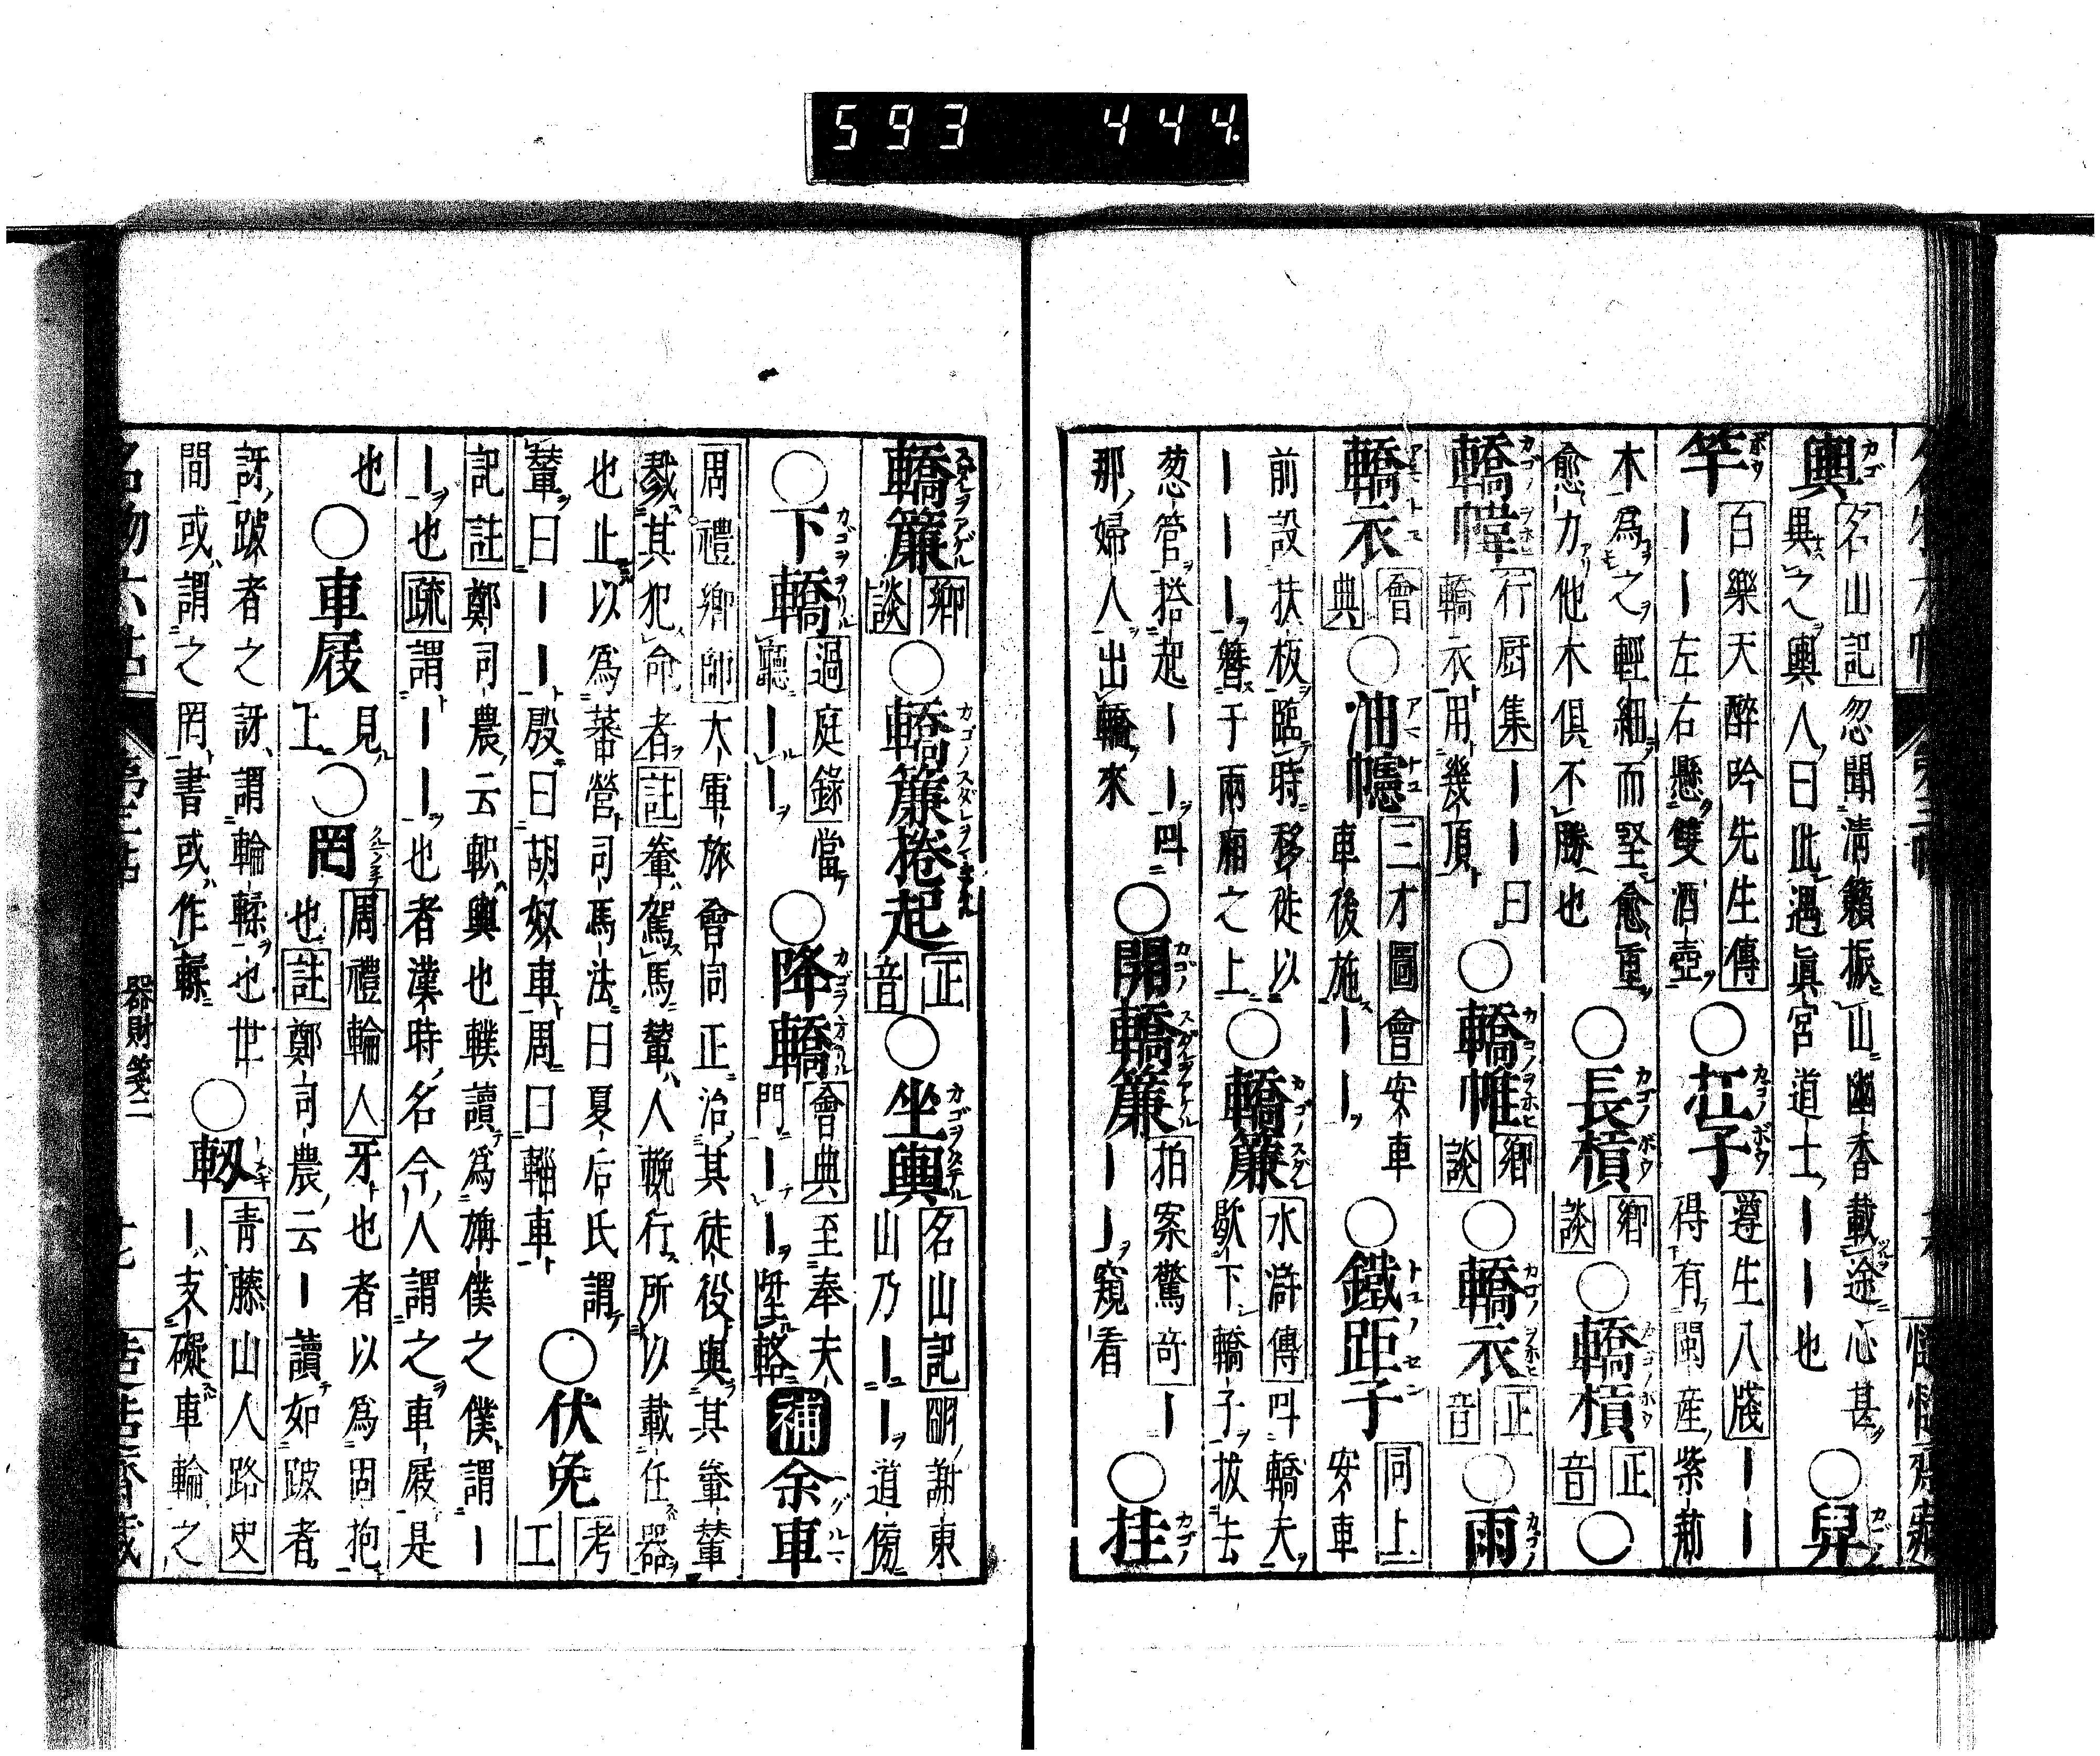 593 444
輿 名山記 忽聞清籟振山幽香載途心甚
異之輿人曰此遇眞宮道士ーーー也 ○舁
竿 百樂天醉吟先生傳
ーー左右懸雙酒壺 ○杠子 遵生八牋 ーー
得有閩産紫荊
木為之輕細而堅愈重
愈力他木俱不勝也 ○長槓 鄉談 ○轎槓 正音 ○
轎幛 行厨集 ーー曰
轎衣用幾頂 ○轎帷 鄉談 ○轎衣 正音 ○雨
轎衣 會典 ○油幰 三才圖會 安車
車後施ーー ○鐵距子 同上 安車
前設扶板臨時移徙以
ーーー簪于兩廂之上 ○轎簾 水滸傳 叫轎夫
歇下轎子拔去
葱管搭起ーー叫
那婦人出轎來 ○開轎簾 拍案驚奇 ー
ーー窺看 ○挂
轎簾 鄉談 ○轎簾捲起 正音 ○坐輿 名山記 明謝東
山乃ーー道傍
○下轎 過庭錄 當
廳ーー ○降轎 會典 至奉天
門ーー陞輅 補 余車
周禮鄉師 大軍旅會同正治其徒役與其輂輦
戮其犯命者 註 輂駕馬輦人輓行所以載任器
也止以爲蕃營司馬法曰夏后氏謂
輦曰ーー殷曰胡奴車周曰輜車 ○伏兔 考工
記註 鄭司農云軹輿也轐讀爲旃僕之僕謂ー
ーー也 疏 謂ーー也者漢時名今人謂之車屐是
也 ○車屐 見上 ○罔 周禮輪人 牙也者以爲固抱
也 註 鄭司農云ー讀如跛者
訝跛者之訝謂輪輮也世
間或謂之罔書或作輮 ○軔 青藤山人路史
ー支礙車輪之
名物六帖 第三帖 器財箋二 十七